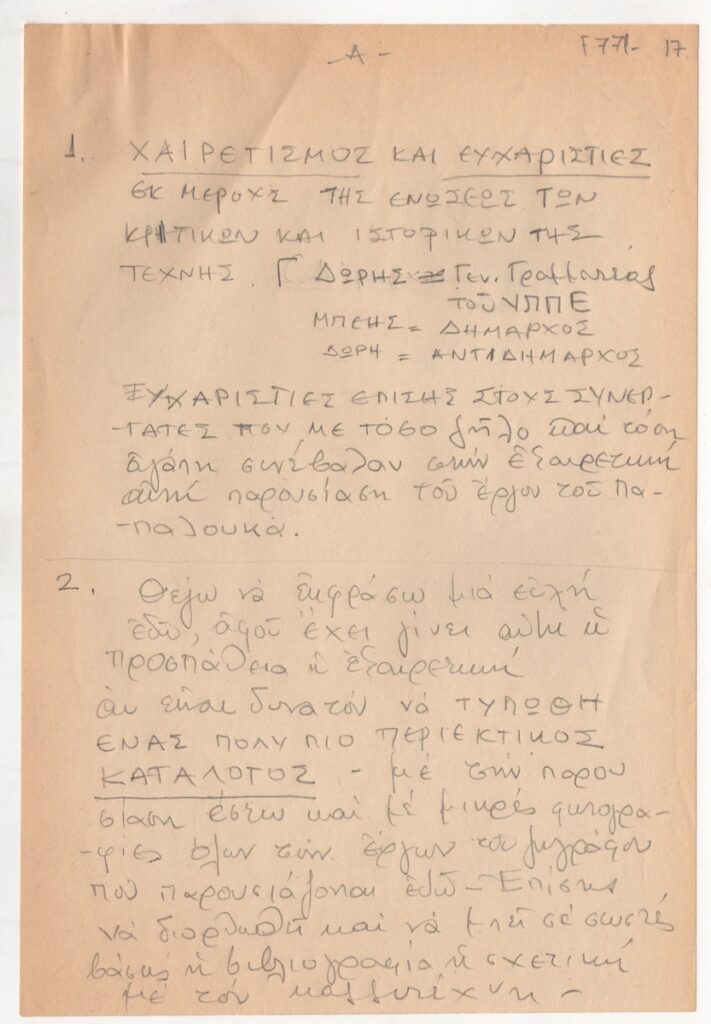 -Α-
F77- 17
1. ΧΑΙΡΕΤΙΣΜΟΣ ΚΑΙ ΕΥΧΑΡΙΣΤΙΕΣ
ΕΚ ΜΕΡΟΥΣ ΤΗΣ ΕΝΩΣΕΩΣ ΤΩΝ
ΚΡΙΤΙΚΩΝ ΚΑΙ ΙΣΤΟΡΙΚΩΝ ΤΗΣ
ΤΕΧΝΗΣ. Γ ΔΩΡΗΣ = Γεν. Γραμματέας
τοῦ ΥΠΠΕ
ΜΠΕΗΣ = ΔΗΜΑΡΧΟΣ
ΔΩΡΗ = ΑΝΤΙΔΗΜΑΡΧΟΣ
ΕΥΧΑΡΙΣΤΙΕΣ ΕΠΙΣΗΣ ΣΤΟΥΣ ΣΥΝΕΡ-
ΓΑΤΕΣ ΠΟΥ ΜΕ ΤΟΣΟ ζῆλο καί τόση
ἀγάπη συνέβαλαν στήν ἐξαιρετική
αὐτή παρουσίαση τοῦ ἔργου τοῦ Πα-
-παλουκᾶ.
2. Θέλω νὰ ἐκφράσω μιά εὐχή
ἐδῶ, ἀφοῦ ἔχει γίνει αὐτή ἡ
προσπάθεια ἡ ἐξαιρετική
ἄν εἶναι δυνατόν νά ΤΥΠΩΘΗ
ΕΝΑΣ ΠΟΛΥ ΠΙΟ ΠΕΡΙΕΚΤΙΚΟΣ
ΚΑΤΑΛΟΓΟΣ - μέ τήν παρου
σίαση ἔστω καί μέ μικρές φωτογρα-
-φίες ὅλων τῶν ἔργων τοῦ ζωγράφου
πού παρουσιάζονται ἐδῶ - Ἐπίσης
νά διορθωθῆ καί νά μπῆ σέ σωστές
βάσεις ἡ βιβλιογραφία ἡ σχετική
μέ τόν καλλιτέχνη -